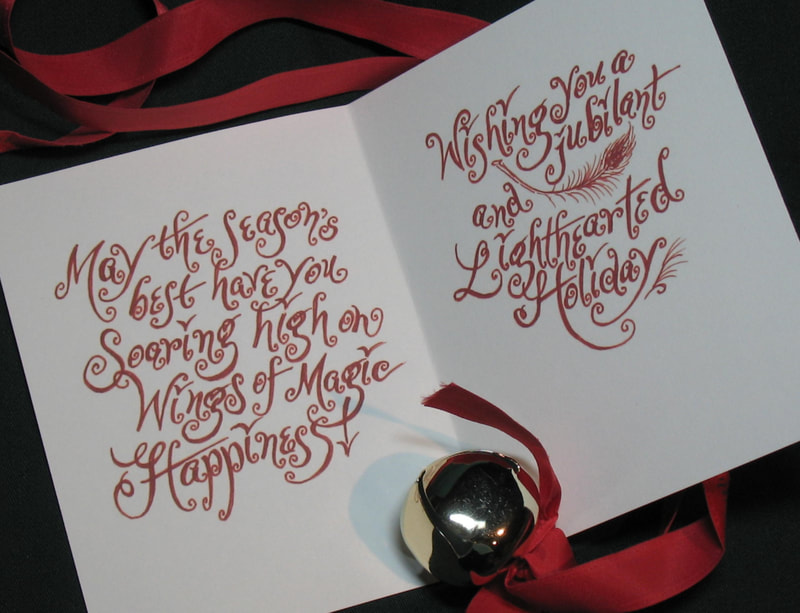 May the season's
best have you
Soaring high on
Wings of Magic
Happiness!
Wishing you a
jubilant
and
Lighthearted
Holiday